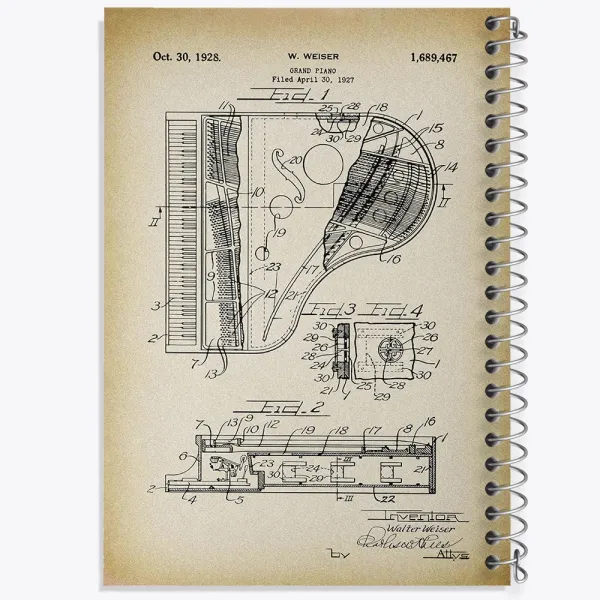 Oct. 30, 1928.
W. WEISER
1,689,467
GRAND PIANO
Filed April 30, 1927
Fig. 1
11
25
28
18
1
24
30
29
15
8
20
14
10
II
II
19
9
23
17
16
3
12
21
2
7
13
Fig. 3
Fig. 4
30
29
26
28
24
30
21
1
25
30
26
27
1
30
28
29
Fig. 2
7
13
9
10
12
19
18
17
8
16
1
6
23
30
24
29
III
21
2
4
5
III
22
Inventor
Walter Weiser
by
Attys